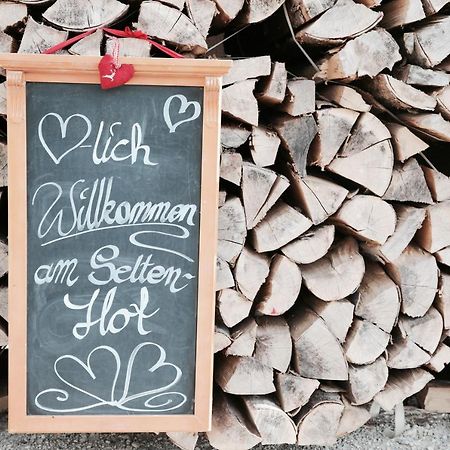 ♡-lich
Willkommen
am Selten-
Hof